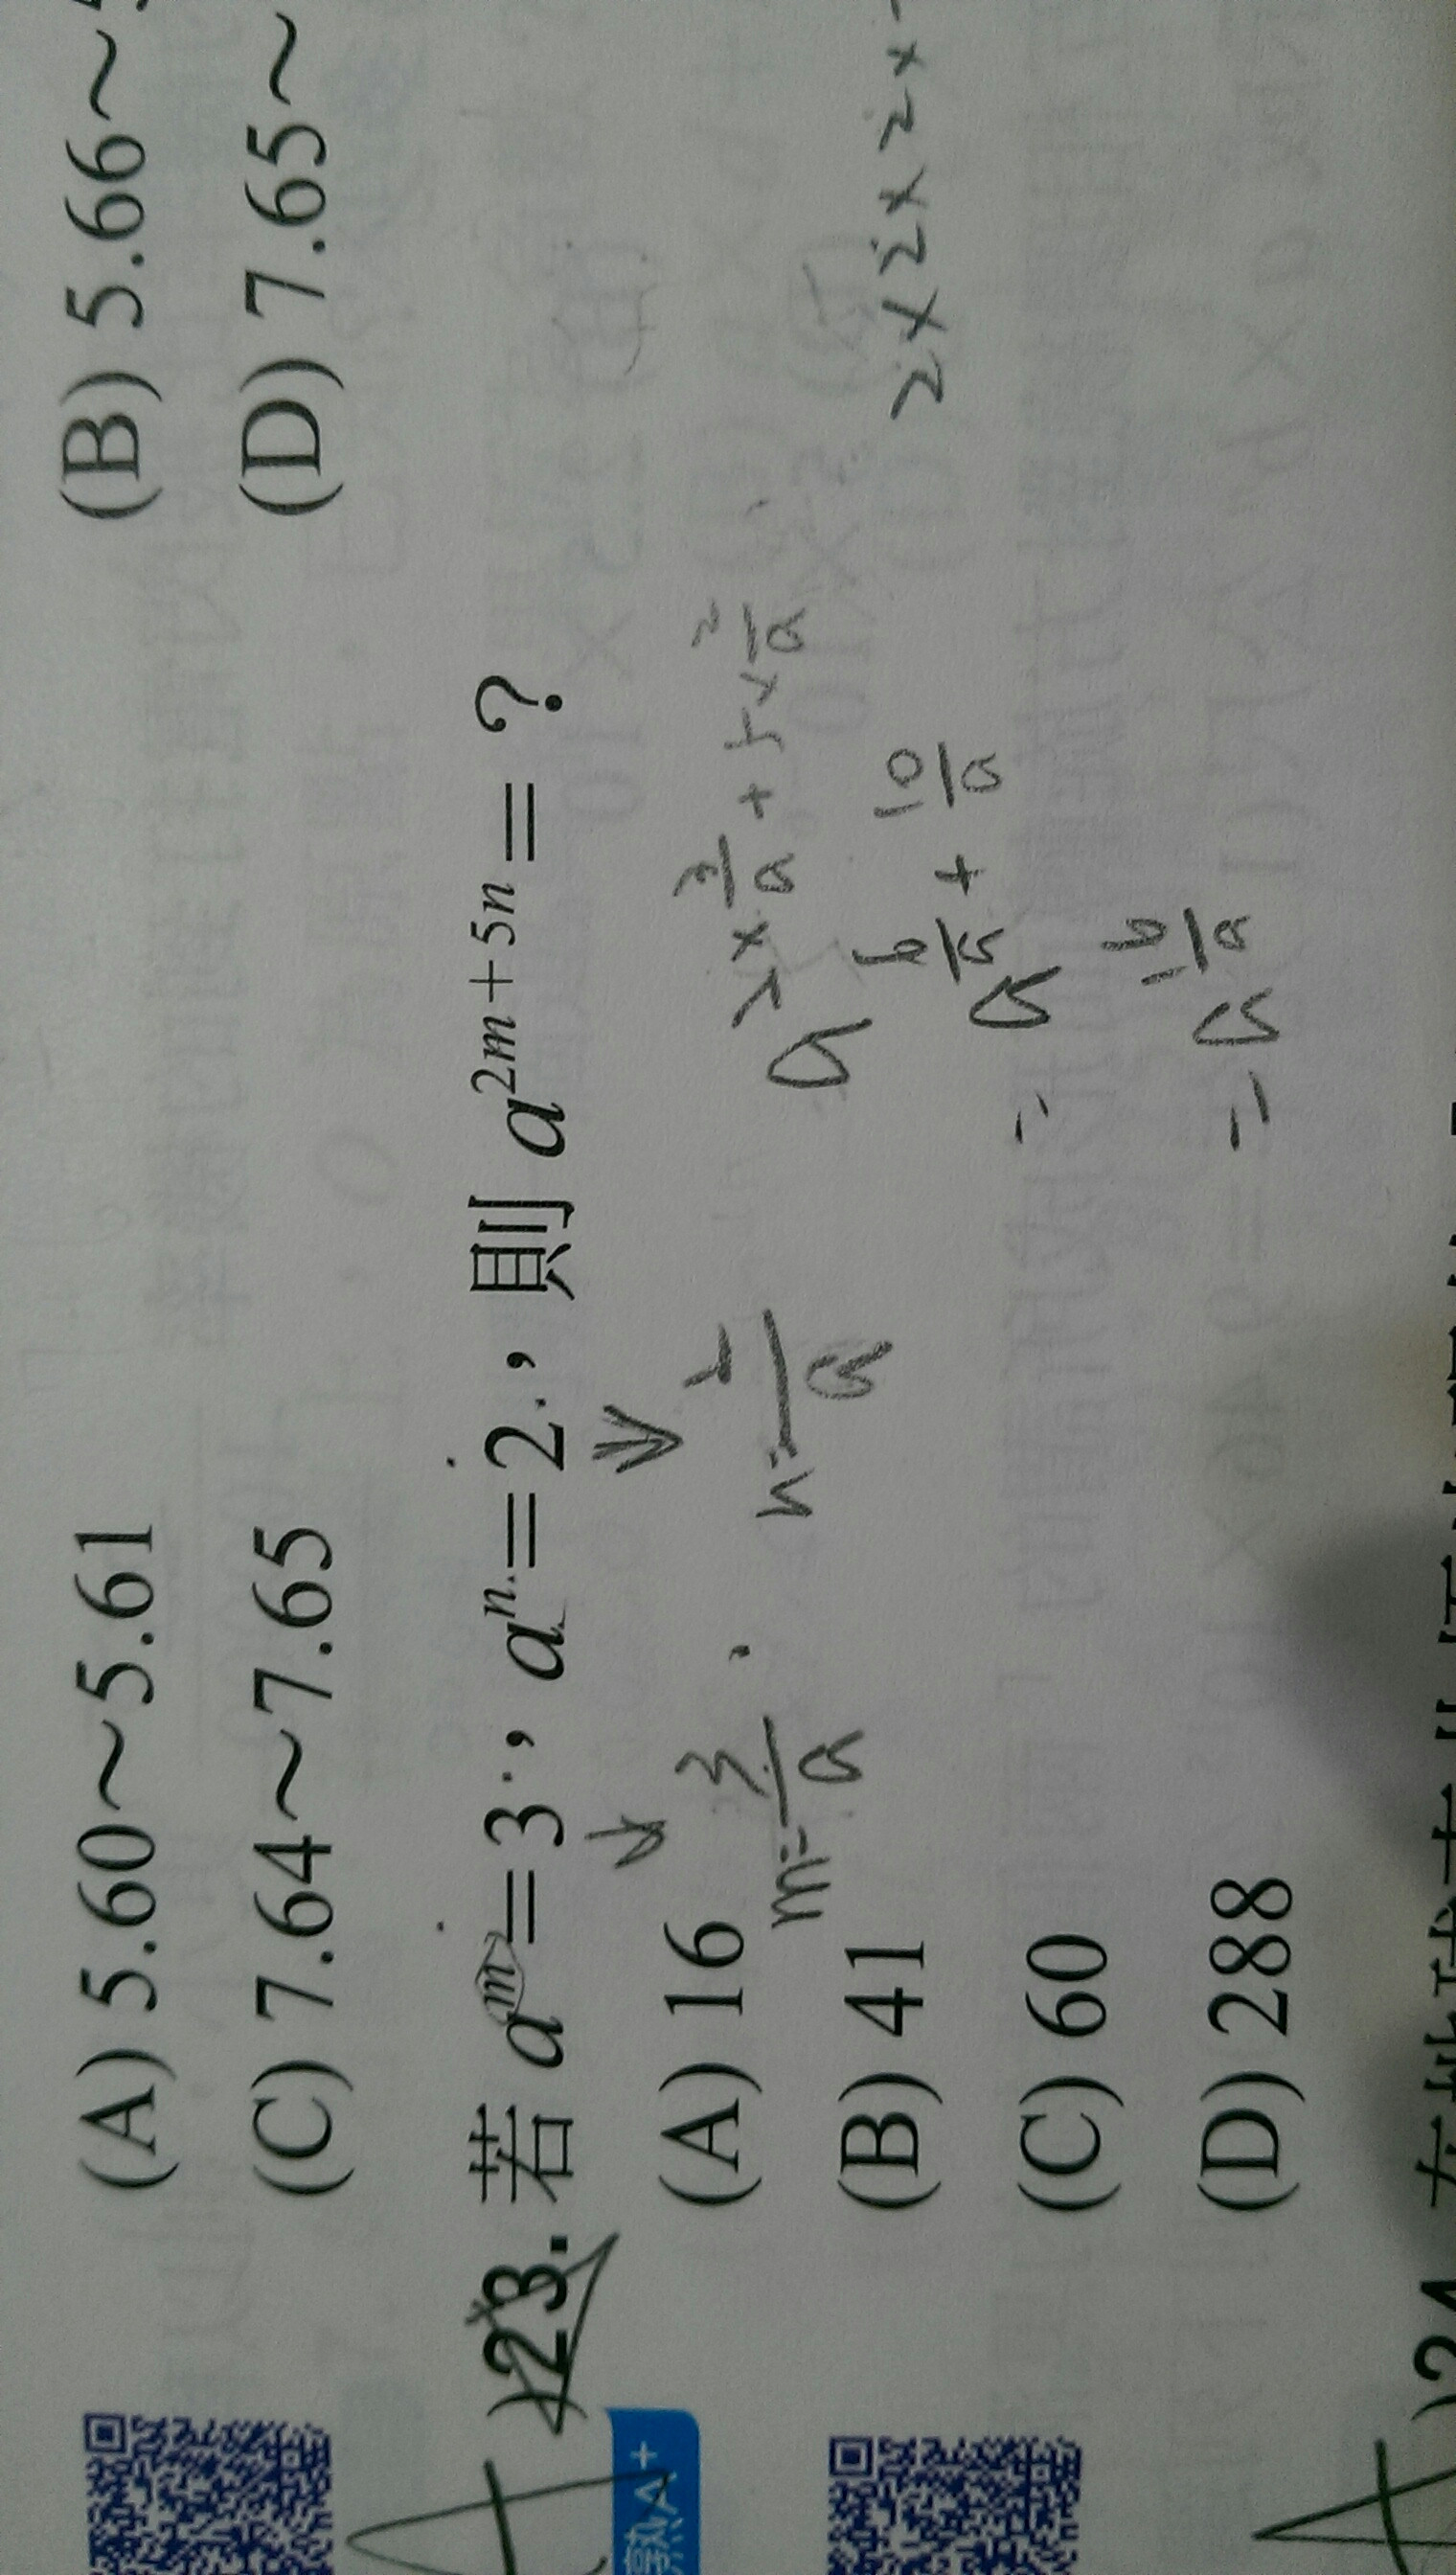 (A) 5.60～5.61 (B) 5.66～
(C) 7.64～7.65 (D) 7.65～
)23. 若 a^m=3，a^n=2，則 a^{2m+5n}=？
(A) 16
(B) 41
(C) 60
(D) 288
m=3/a
n=2/a
a^{2×3/a+5×2/a}
=a^{6/a+10/a}
=a^{16/a}
2×2×2×
熟A+
)24.